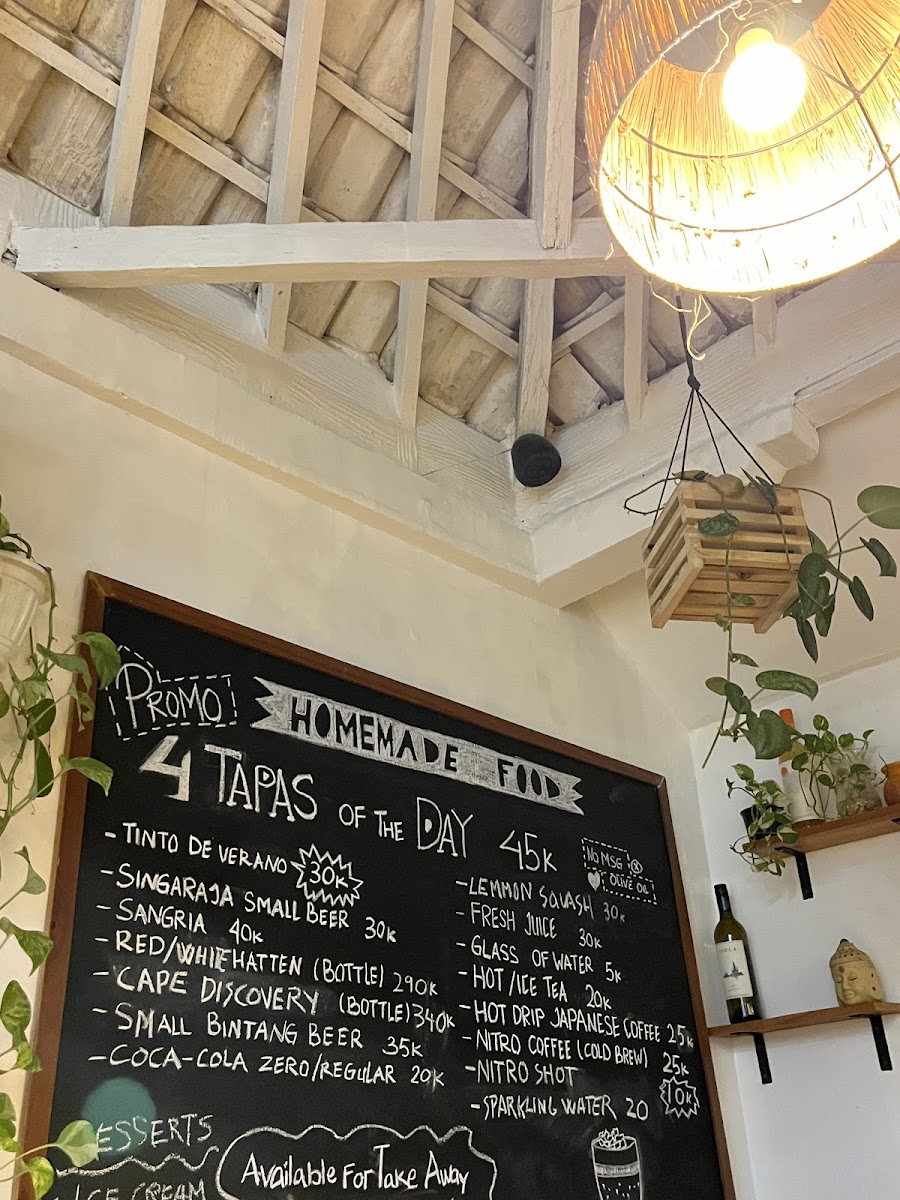 PROMO
HOMEMADE FOOD
4 TAPAS OF THE DAY 45K
NO MSG
OLIVE OIL
- TINTO DE VERANO 30K
- SINGARAJA SMALL BEER 30K
- SANGRIA 40K
- RED/WHITE HATTEN (BOTTLE) 290K
- CAPE DISCOVERY (BOTTLE) 340K
- SMALL BINTANG BEER 35K
- COCA-COLA ZERO/REGULAR 20K
- LEMMON SQUASH 30K
- FRESH JUICE 30K
- GLASS OF WATER 5K
- HOT/ICE TEA 20K
- HOT DRIP JAPANESE COFFEE 25K
- NITRO COFFEE (COLD BREW) 25K
- NITRO SHOT 10K
- SPARKLING WATER 20
DESSERTS
ICE CREAM
Available For Take Away